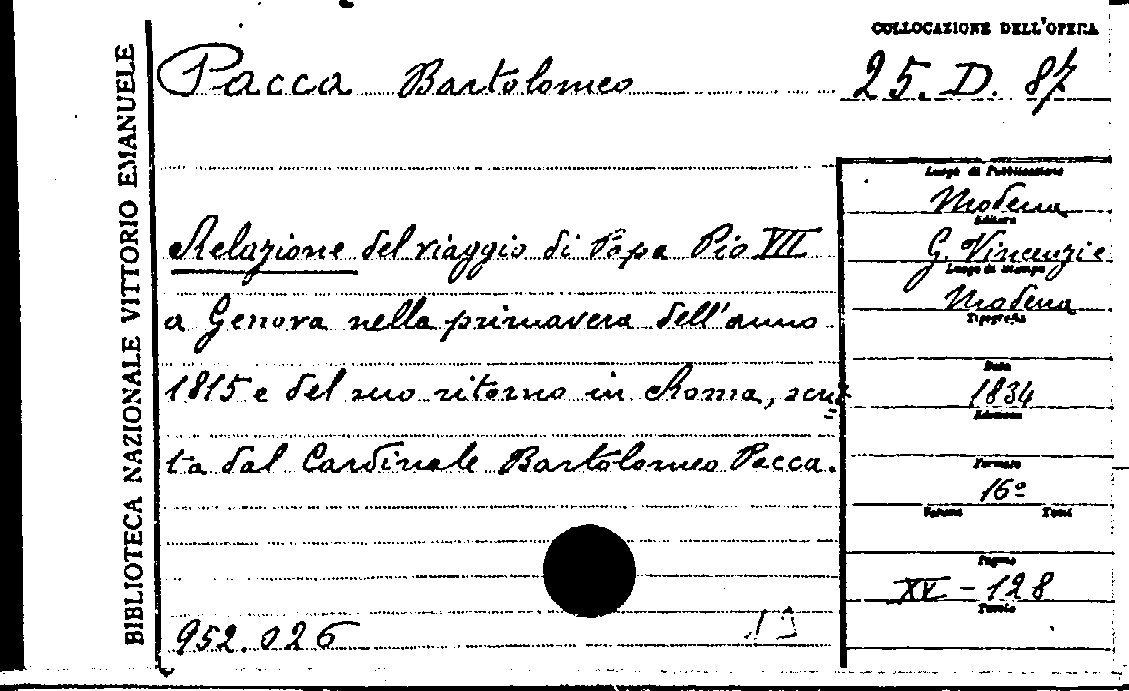 BIBLIOTECA NAZIONALE VITTORIO EMANUELE
COLLOCAZIONE DELL'OPERA
Pacca Bartolomeo
25. D. 87
Luogo di Pubblicazione
Modena
Editore
G. Vincenzi e
Luogo di stampa
Modena
Tipografia
Data
1834
Edizione
Formato
16º
Volume Tomi
Pagine
XV - 128
Tavole
Relazione del viaggio di Papa Pio VII
a Genova nella primavera dell'anno
1815 e del suo ritorno in Roma, scrit
ta dal Cardinale Bartolomeo Pacca.
952.026